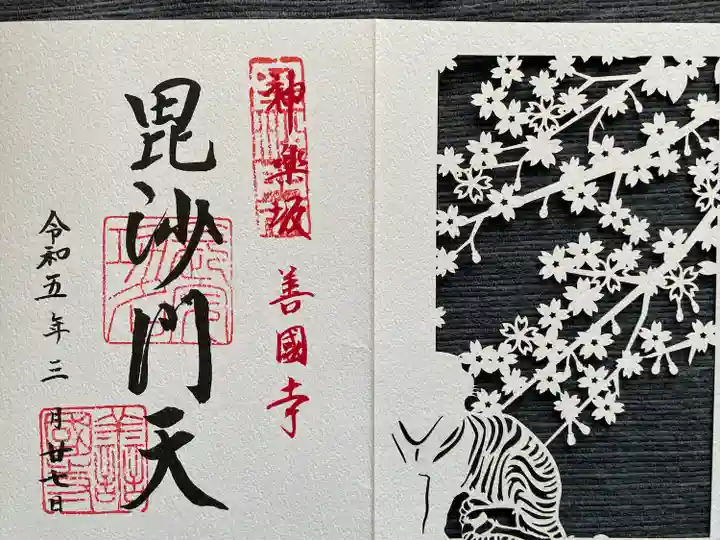 神楽坂 善國寺
毘沙門天
令和五年三月廿七日